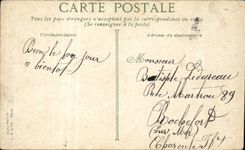 CARTE POSTALE
Tous les pays étrangers n'acceptent pas la correspondance au recto
(Se renseigner à la poste)
Correspondance
Adresse du destinataire
Bien le bon jour
a bientot
Monsieur
Batiste
Rte Martrou 89
Rochefort
Sur Mer